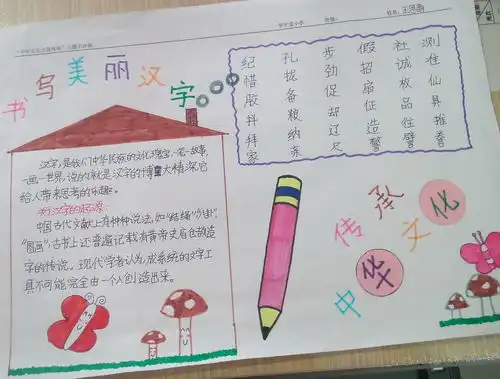 书写美丽汉字
汉字,是我们中华民族的文化瑰宝,一笔一故事,
一画一世界,说的就是汉字的博大精深它
给人带来思考的乐趣。
关于汉字的起源:
中国古代文献上有种种说法,如“结绳”“八卦”
“图画”,古书上还普遍记载有黄帝史官仓颉造
字的传说。现代学者认为,成系统的文字工
具不可能完全由一个人创造出来。
纪 孔 步 假 社 测
惜 拢 劲 招 诚 准
胶 备 促 庙 枚 仙
抖 粮 却 征 品 具
拜 纳 辽 造 住 推
家 亲 尺 警 臂 卷
传承文化
中华